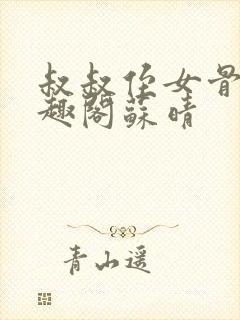 叔叔侄女骨
趣阁苏晴
青山遥